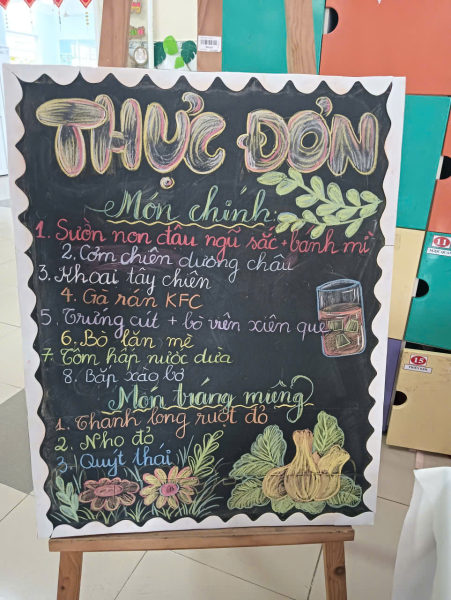 THỰC ĐƠN
Món chính:
1. Sườn non đậu ngũ sắc + bánh mì
2. Cơm chiên dương châu
3. Khoai tây chiên
4. Gà rán KFC
5. Trứng cút + bò viên xiên que
6. Bò lăn mè
7. Tôm hấp nước dừa
8. Bắp xào bơ
Món tráng miệng
1. Thanh long ruột đỏ
2. Nho đỏ
3. Quýt thái
11
15